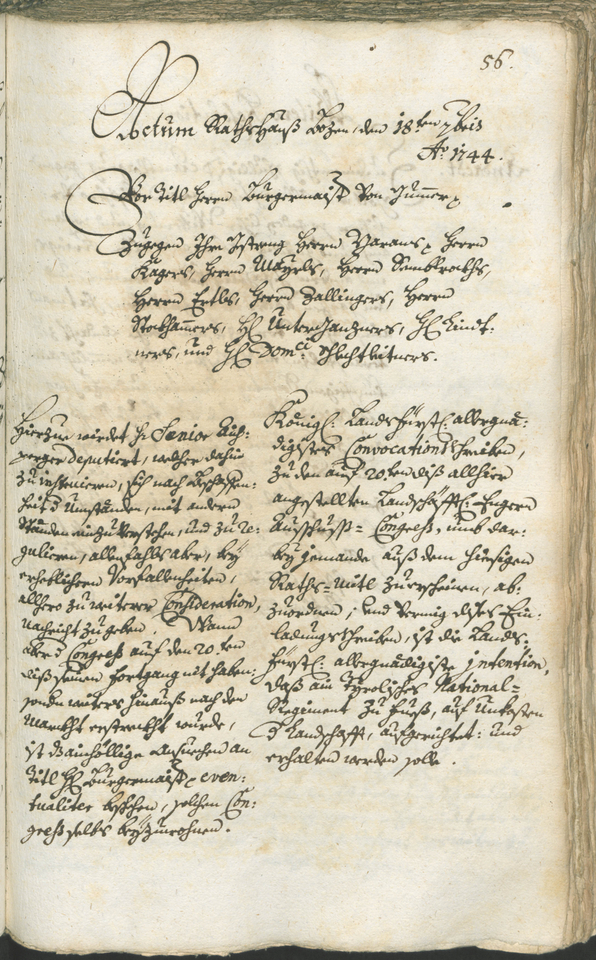 56.
Actum Rathshauß Bozen, den 18ten 7bris
Ao 1744.
Vor Titl Herrn Burgermaister von
Zugegen Ihro Herrn Herrn
Kagers, Herrn Mayrls, Herrn
Herrn Ertls, Herrn Zallingers, Herrn
H: H:
ners, und H: Domci: Schlechtleitners.
Hierzue wirdet H: Senior
deputiert, welcher dahin
zu instruieren, sich nach beschaffen:
heit d Umständen, mit andern
Ständen einzuverstehen, und zu re:
gulieren, allenfahls aber, bey
erheblichern Vorfallenheiten,
allhero zu weiterer Consideration,
nachricht zu geben. Wann
aber d Congress auf den 20.ten
diß seinen fortgang nit haben:
sondern weiters hinauß nach den
Marckht erstreckht wurde,
ist d ainhöllige ansuechen an
Titl H: Burgermaister even:
tualiter beschehen, solchen Con:
gress selbs beyzuwohnen.
Königl: Landtsfürstl: allergnä:
digistes Convocations schreiben,
zu den auf 20.ten diß allhier
angestellten Landschäfftl: Engern
Ausschuss= Congress, umb dar:
bey jemandt auß dem hiesigen
Raths=Mitl zu erscheinen, ab:
zuordnen; und vermög dises Ein:
ladungschreiben, ist die Landts:
fürstl: allergnädigiste intention,
daß ain Tyrolisches National=
Regiment zu Fueß, auf Unkosten
d Landschafft, aufgerichtet: und
erhalten werden solle.